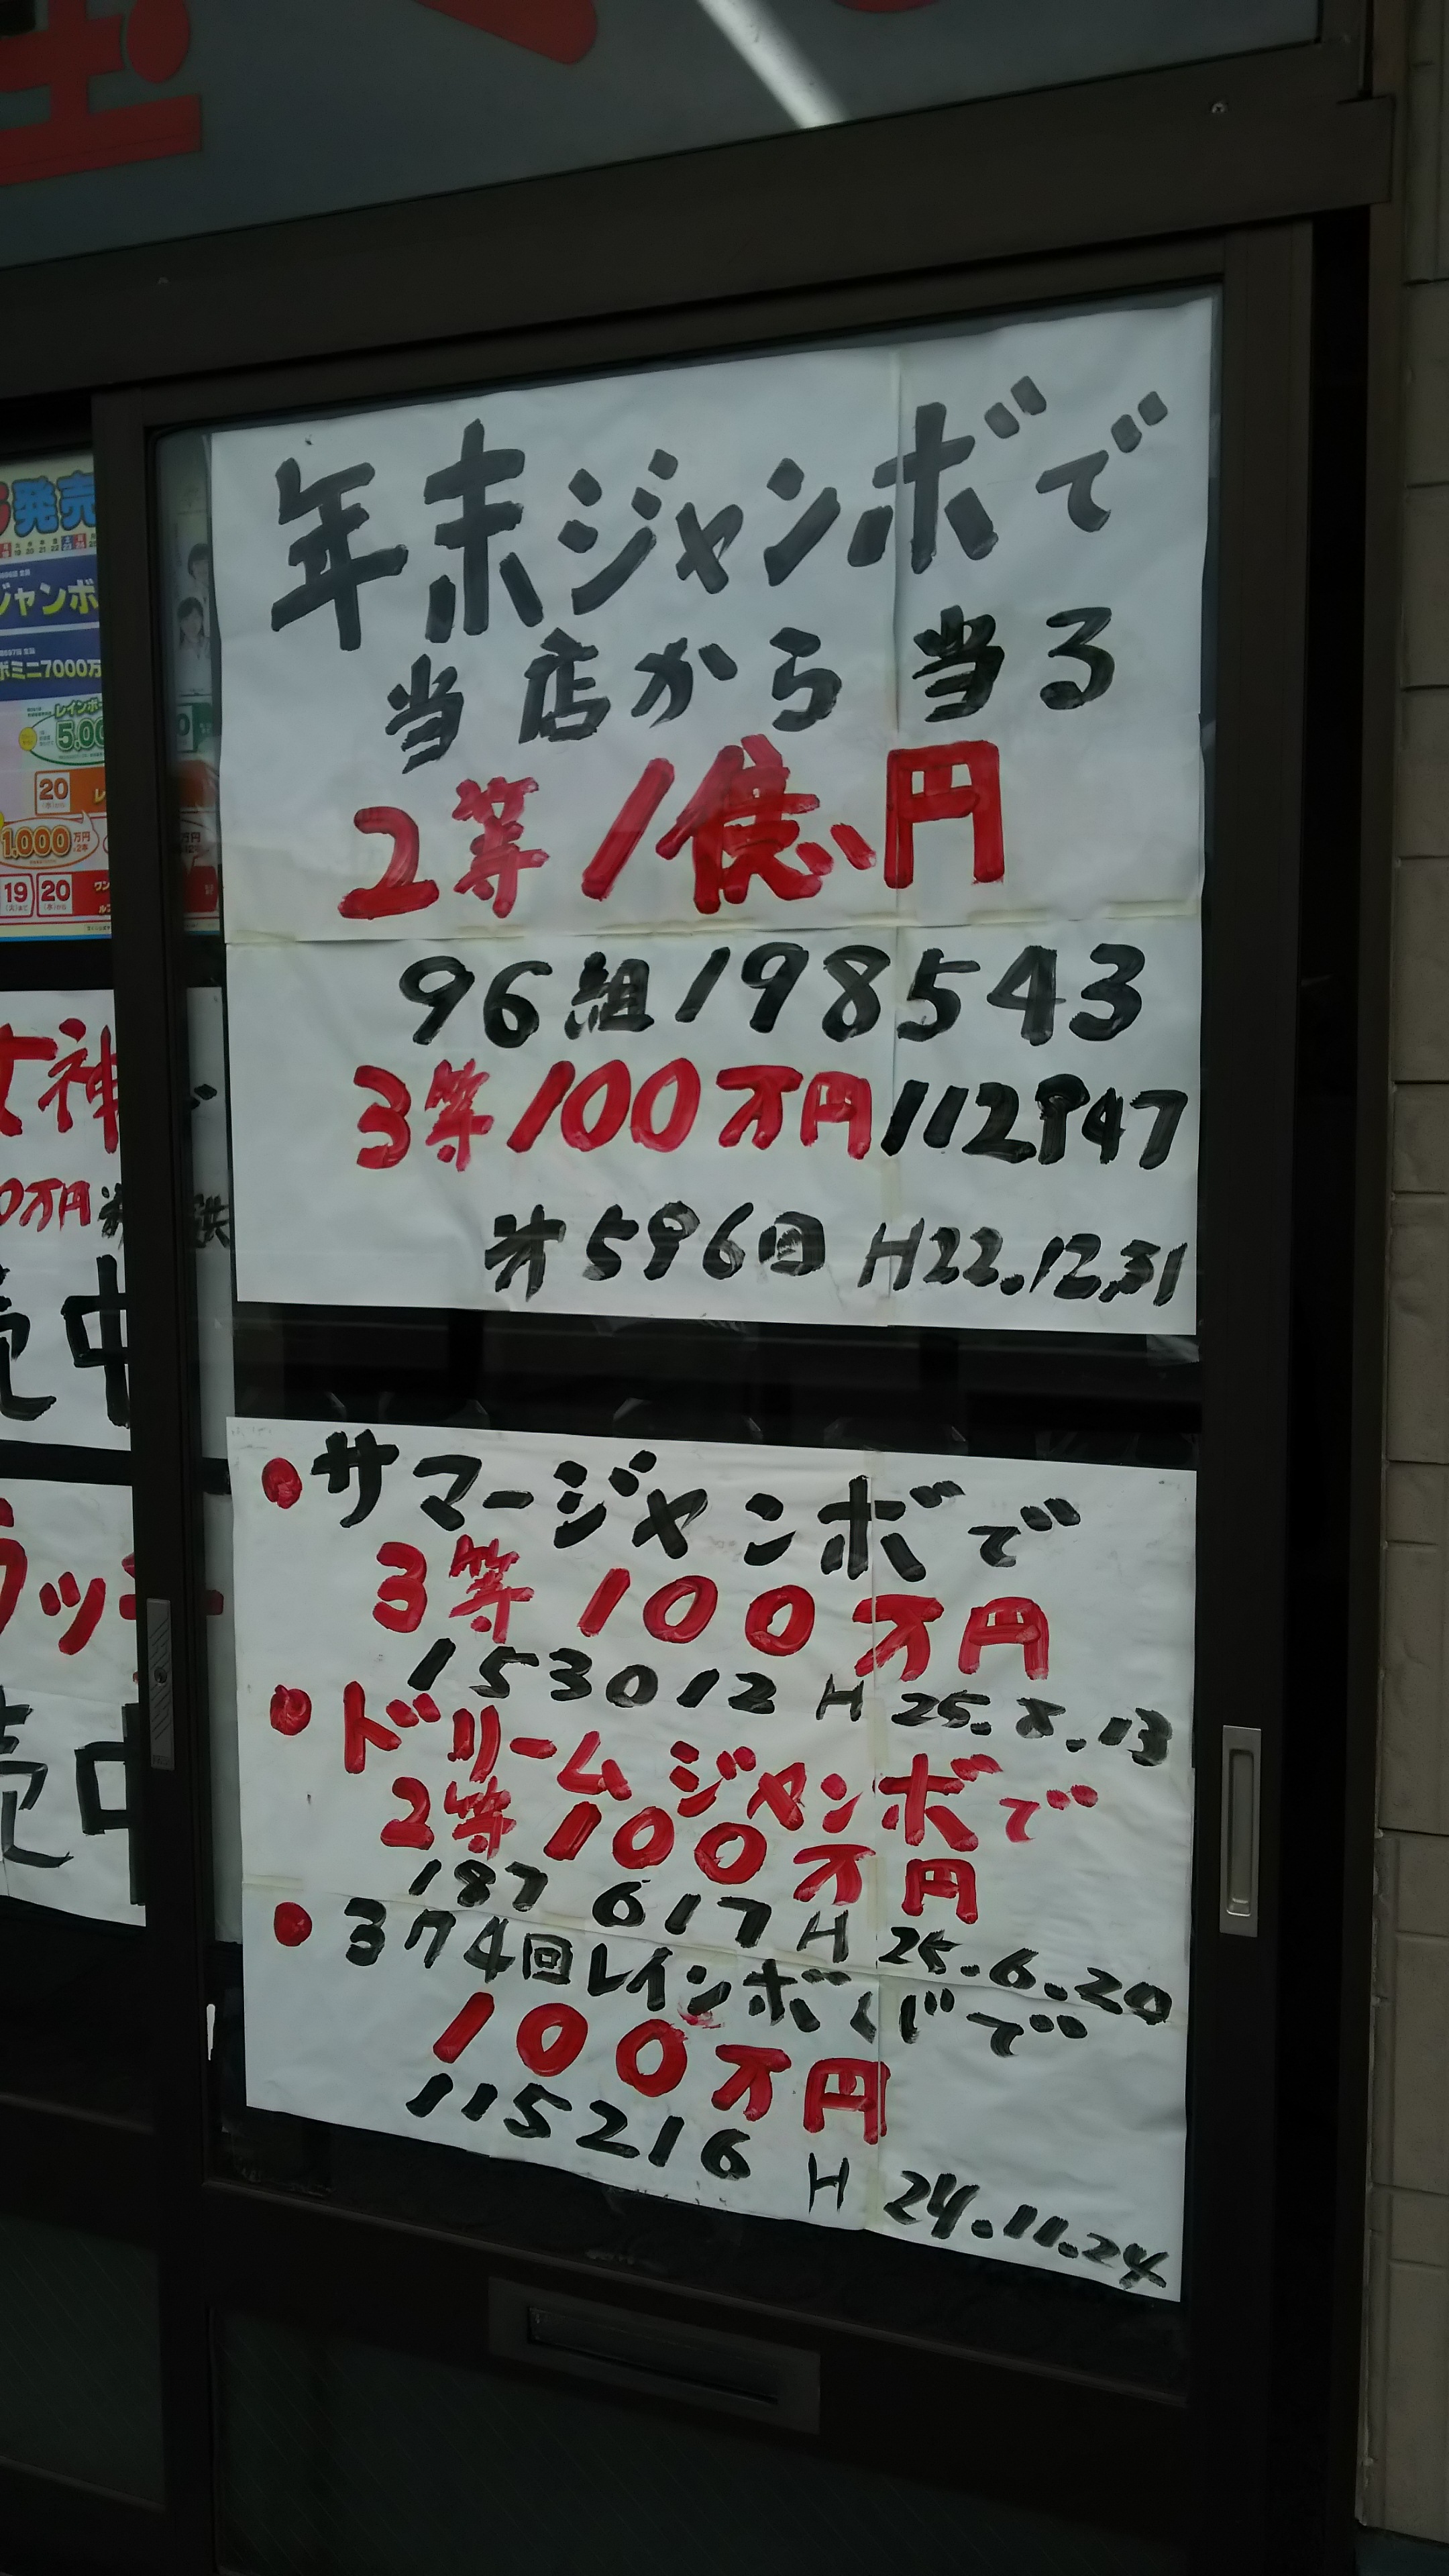 年末ジャンボで
当店から当る
2等1億円
96組198543
3等100万円112947
第596回 H22.12.31
●サマージャンボで
3等100万円
153012 H25.8.13
●ドリームジャンボで
2等100万円
187617 H25.6.20
●374回レインボくじで
100万円
115216 H24.11.24
発売
ジャンボ
ボミニ7000万
レインボ
5,00
20
1,000万円
19 20
女神
0万円
売中
ラッキ
売中